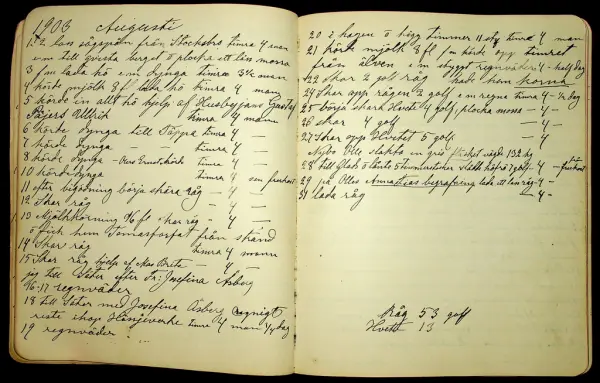 1903 Augusti
1. 2 las sågspån från Stocksbro timra 4 man
em till qversta berget o plocka ett las mossa
3 fm lada hö em dynga timra 3½ man
4 körde mjölk 8 fl lada hö timra 4 man
5 körde in allt hö hjelp af Husbyjans Gustaf
Påjers Ullrik timra 4 mann
6 körde dynga till Täppa timra 4 —
7 körde dynga — timra 4 —
8 körde dynga — Ernst, körde timra 4 —
10 körde dynga timra 4 frukost
11 efter bigödning börja skära råg — 4 —
12 Skar råg — 4 —
13 Mjölkkörning 96 fl skar råg — 4 —
o fick hem Tomasfosfat från strand
14 Skar råg timra 4 mann
15 Skar råg hjelp af Mas Brita — 4 —
jeg till Säter efter Fr: Josefina Åsberg
16:17 regnväder
18 till Säter med Josefina Åsberg regnigt
reste skop timra 4 man ¼ dag
19 regnväder
20 i hagen o högg timmer 11 stg timra 4 man
21 körde mjölk 8 fl fm körde opp timret
från älfven i em skyggt regnväder 4 - half dag
22 skar 2 golf råg hade hem
24 Skar opp rågen 2 golf em regna timra 4 - ¼ dag
25 börja skara Hvete 4 golf, plocka moss — 4 —
26 skar 4 golf — 4 —
27 Skar opp Hvetet 5 golf — 4 —
Nybo Olle slakta en gris fläsket vägde 132 kg
28 till Glad 5 lårts 5 timmerstockar
29 på Olles Annastias begrafning lada ett las råg - 4 -
31 lada råg — 4 -
Råg 53 golf
Hvete 13